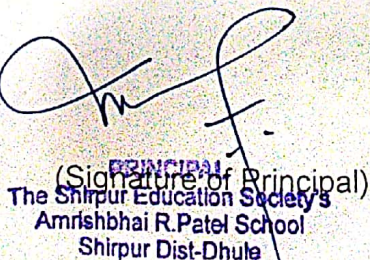 PRINCIPAL
(Signature of Principal)
The Shirpur Education Society's
Amrishbhai R.Patel School
Shirpur Dist-Dhule